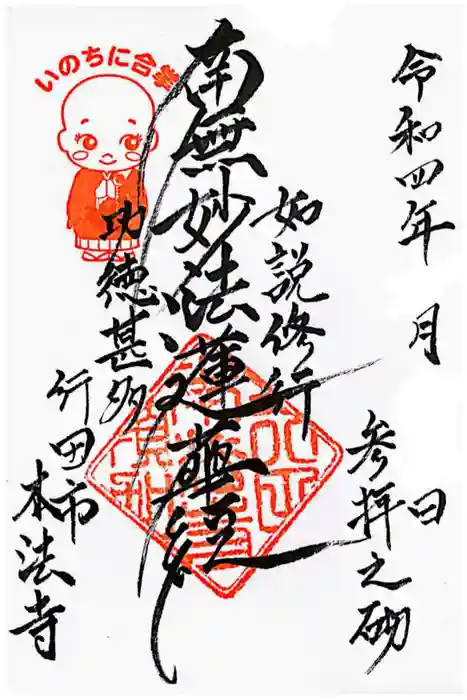 令和四年 月 日
参拝之砌
如説修行
南無妙法蓮華経
功徳甚多
行田市
本法寺
いのちに合掌